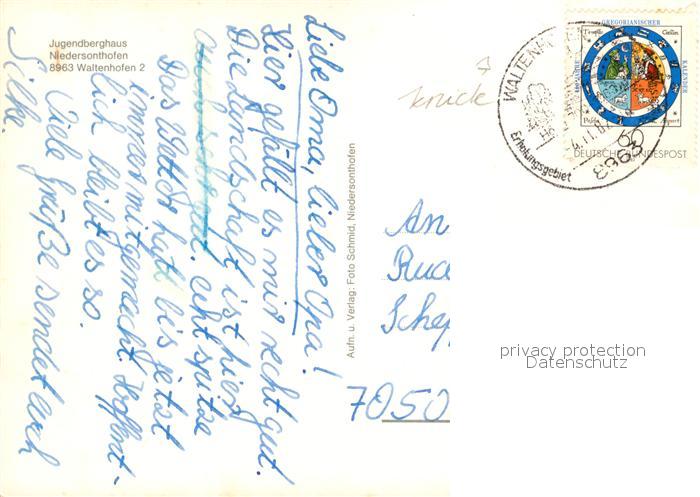 Jugendberghaus
Niedersonthofen
8963 Waltenhofen 2
Liebe Oma, lieber Opa!
Hier gefällt es mir recht gut.
Die Landschaft ist hier
echt spitze
Das Wetter hat bis jetzt
immer mitgemacht. Hoffent-
lich bleibt es so.
Viele Grüße sendet euch
Silke.
Aufn. u. Verlag: Foto Schmid, Niedersonthofen
knicke
WALTENH
Erholungsgebiet
8963
GREGORIANISCHER
KALENDER
400 JAHRE
DEUTSCHE BUNDESPOST
An
Rud
Schep
7050
privacy protection
Datenschutz